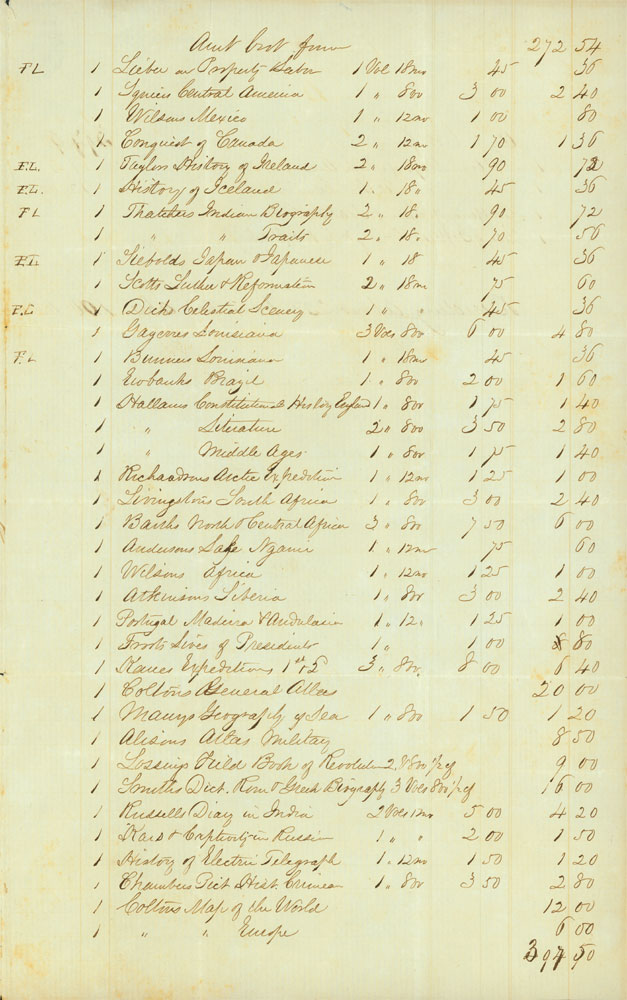 Amt brot forw 272 54
F L 1 Lieber on Property Labor 1 Vol 18mo 45 36
1 Squiers Central America 1 " 8vo 3 00 2 40
1 Wilsons Mexico 1 " 12mo 1 00 80
1 Conquest of Canada 2 " 12mo 1 70 1 36
F.L. 1 Taylors History of Ireland 2 " 18mo 90 72
F.L. 1 History of Iceland 1 " 18 " 45 36
F L 1 Thatchers Indian Biography 2 " 18 " 90 72
1 " " Traits 2 " 18 " 70 56
F.L. 1 Siebolds Japan & Japanese 1 " 18 45 36
1 Scotts Luther & Reformation 2 " 18mo 75 60
F.L 1 Dicks Celestial Scenery 1 " " 45 36
1 Gayerres Louisiana 3 Vols 8vo 6 00 4 80
F. L 1 Bunners Louisiana 1 " 18mo 45 36
1 Ewbanks Brazil 1 " 8vo 2 00 1 60
1 Hallams Constitutional History England 1 " 8vo 1 75 1 40
1 " Literature 2 " 8vo 3 50 2 80
1 " Middle Ages 1 " 8vo 1 75 1 40
1 Richardsons Arctic Expedition 1 " 12mo 1 25 1 00
1 Livingstons South Africa 1 " 8vo 3 00 2 40
1 Barths North & Central Africa 3 " 8vo 7 50 6 00
1 Andersons Lake Ngami 1 " 12mo 75 60
1 Wilsons Africa 1 " 12mo 1 25 1 00
1 Atkinsons Siberia 1 " 8vo 3 00 2 40
1 Portugal Madeira & Andalusia 1 " 12 " 1 25 1 00
1 Frosts Lives of Presidents 1 " 1 00 80
1 Kanes Expeditions 1st & 2 3 " 8vo 8 00 6 40
1 Coltons General Atlas 20 00
1 Maurys Geography of Sea 1 " 8vo 1 50 1 20
1 Alisons Atlas Military 8 50
1 Lossings Field Book of Revolution 2 V 8vo 1/2 cf 9 00
1 Smiths Dict. Rom & Greek Biography 3 Vols 8vo 1/2 cf 16 00
1 Russells Diary in India 2 Vols 12mo 5 00 4 20
1 & Captivity in Russia 1 " " 2 00 1 50
1 History of Electric Telegraph 1 " 12mo 1 50 1 20
1 Chambers Pict. Hist. Crimean 1 " 8vo 3 50 2 80
1 Coltons Map of the World 12 00
1 " " Europe 6 00
50